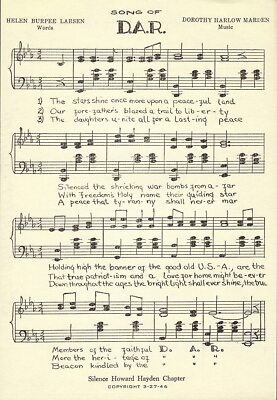 SONG OF
D.A.R.
HELEN BURPEE LARSEN
Words
DOROTHY HARLOW MARDEN
Music
1) The stars shine once more upon a peace-ful land
2) Our fore-fathers blazed a trail to lib-er-ty
3) The daughters u-nite all for a last-ing peace
Silenced the shrieking war bombs from a-far
With Freedom's Holy name their guiding star
A peace that ty-ran-ny shall nev-er mar
Holding high the banner of the good old U.S.-A., are the
That true patriot-ism and a love for home might be-ever
Down throughout the ages the bright light shall ever shine, the true
Members of the faithful D. A. R.
More the her-i-tage of " " "
Beacon kindled by the " " "
Silence Howard Hayden Chapter
COPYRIGHT 3-27-46